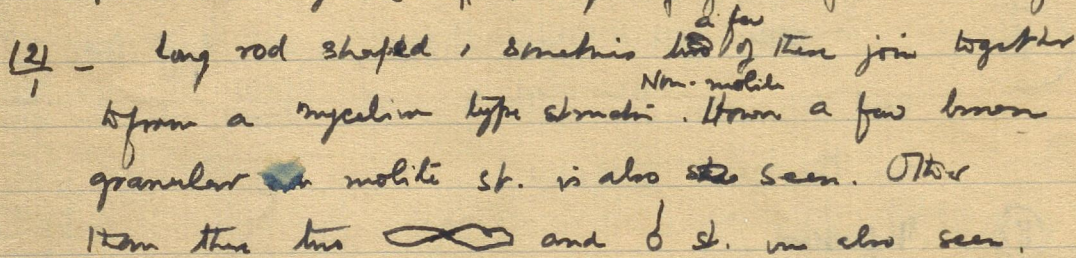 12/1 - Long rod shaped, sometimes a few of these join together
to form a mycelium type structure. Non-motile. However a few brown
granular motile st. is also seen. Other
than these two and st. are also seen.